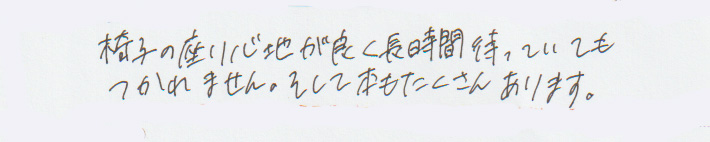 椅子の座り心地が良く長時間待っていても
つかれません。そして本もたくさんあります。